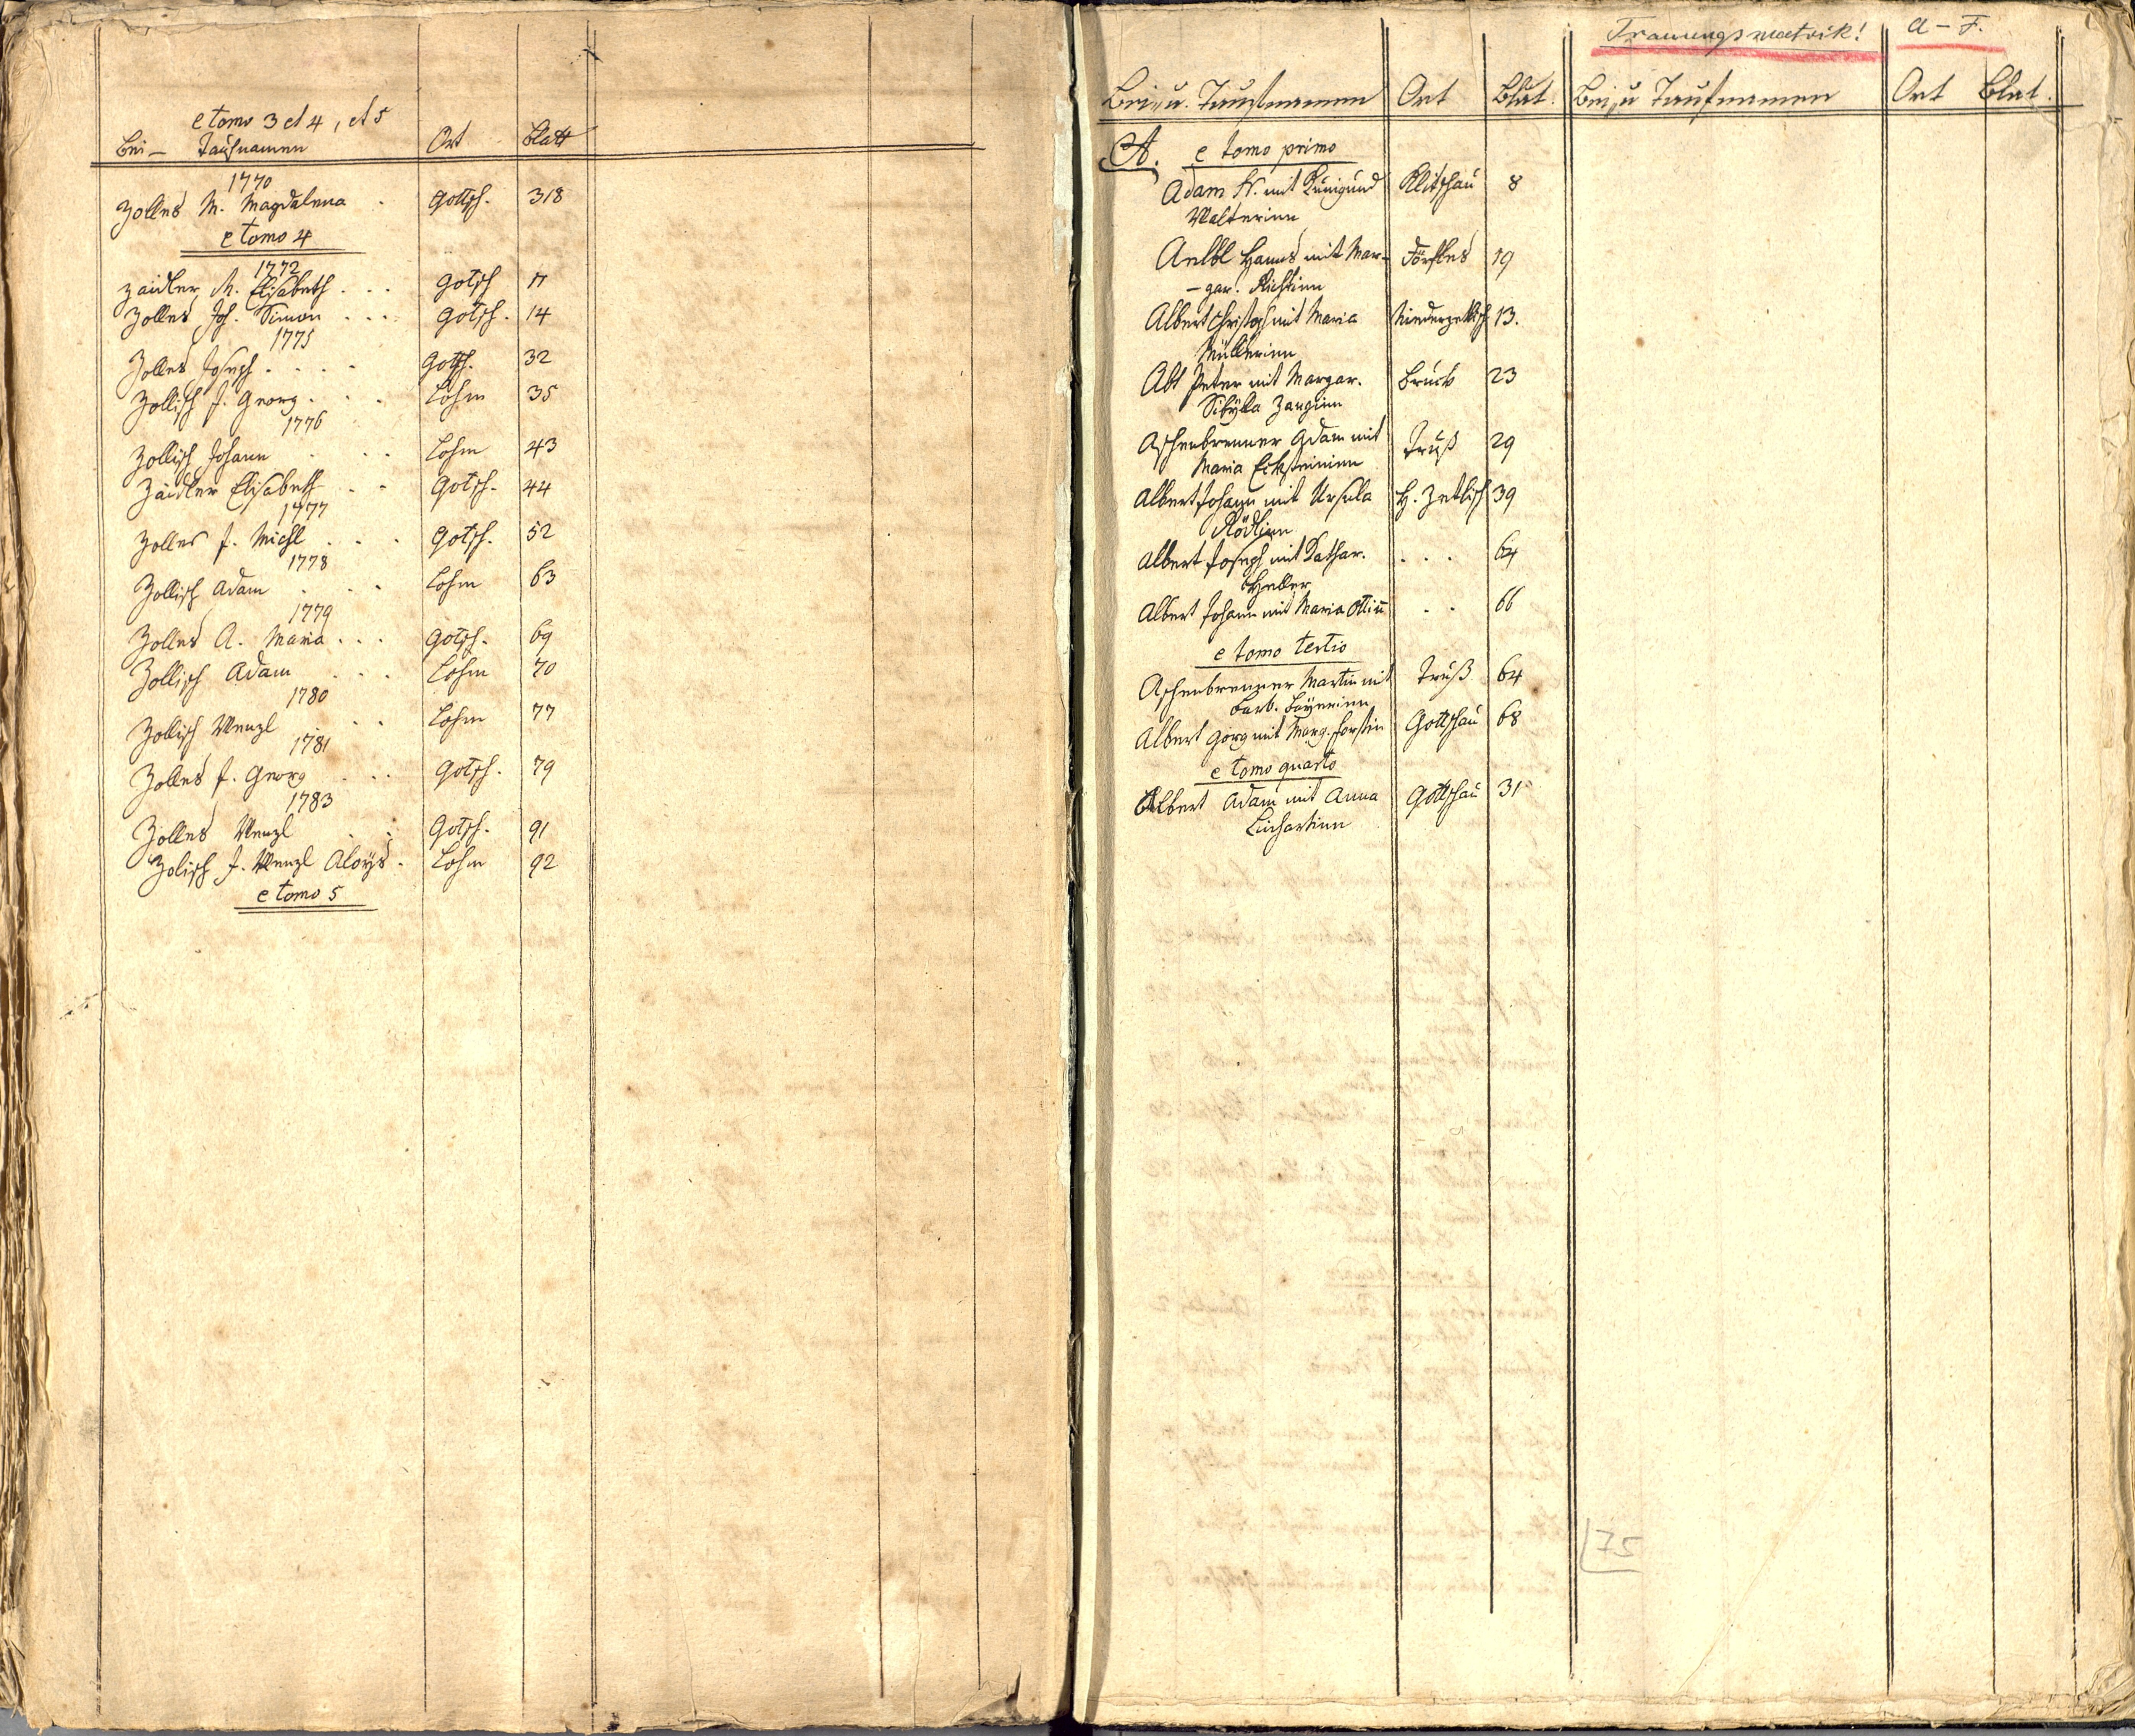 e tomo 3 et 4, et 5
Bei- Taufnamen Ort Blatt
1770
Zolles M. Magdalena Gottsch. 318
e tomo 4
1772
Zaidler M. Elisabeth Gotsch 11
Zolles Joh. Simon Gotsch. 14
1775
Zolles Joseph Gottsch. 32
Zollisch J. Georg Lohm 35
1776
Zollisch Johann Lohm 43
Zaidler Elisabeth Gotsch. 44
1777
Zolles J. Michl Gotsch. 52
1778
Zollisch Adam Lohm 63
1779
Zolles A. Maria Gotsch. 69
Zollisch Adam Lohm 70
1780
Zollisch Wenzl Lohm 77
1781
Zolles J. Georg Gotsch. 79
1783
Zolles Wenzl Gotsch. 91
Zolisch J. Wenzl Aloys Lohm 92
e tomo 5
Trauungsmatrik! A-F.
Bei u. Taufnamen Ort Blat. Bei u Taufnamen Ort Blat.
A. e tomo primo
Adam mit Kunigund Klitschau 8
Walterinn
Hanns mit Mar- 19
-gar.
Albert Christoph mit Maria 13.
Müllerinn
Abt Peter mit Margar. Bruck 23
Sibÿlla
Aschenbrenner Adam mit Truß 29
Maria Ecksteininn
Albert Johann mit Ursula H. Zetlisch 39
Rödlinn
Albert Joseph mit Kathar. . . . 64
Heller
Albert Johann mit Maria . . 66
e tomo tertio
Aschenbrenner Martin mit Truß 64
Barb. Baÿerinn
Albert Görg mit Marg. Forstin Gottschau 68
e tomo quarto
Albert Adam mit Anna Gottschau 31
Linhartinn
75